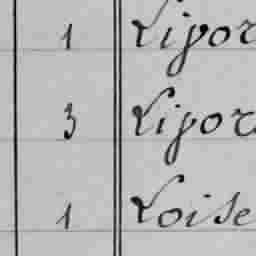 1 Lipor
3 Lipor
1 Loise